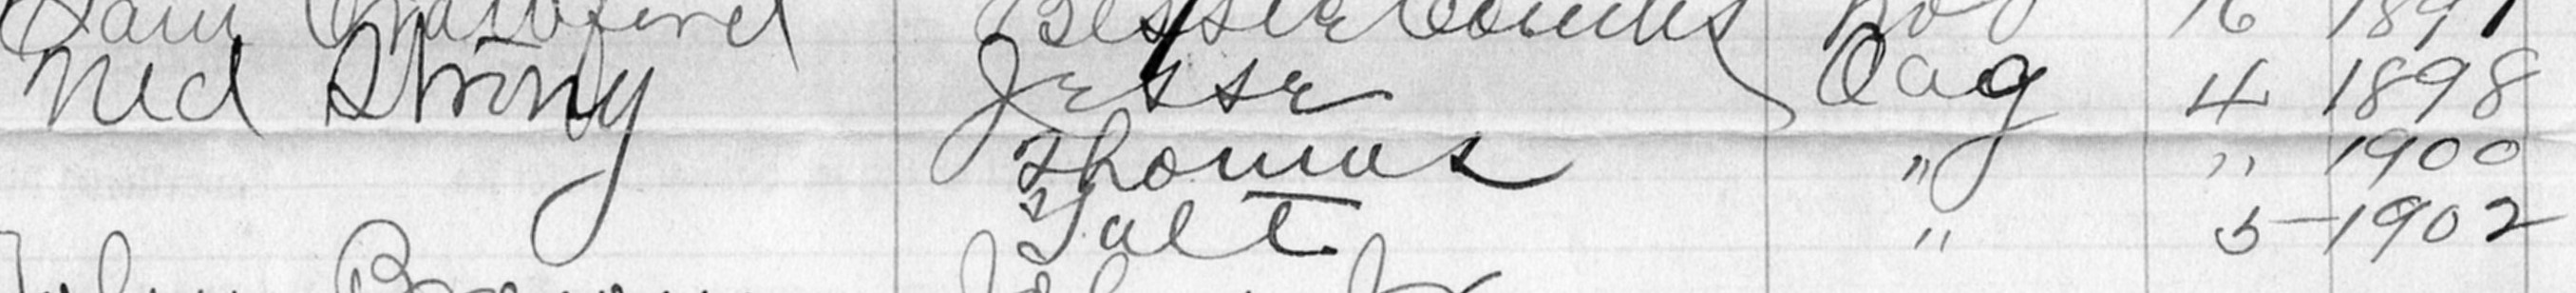 Sam Crawford Bessie Combs Nov 16 1897
Ned Strong Jesse Aug 4 1898
Thomas " " 1900
Galt " 5 1902
John